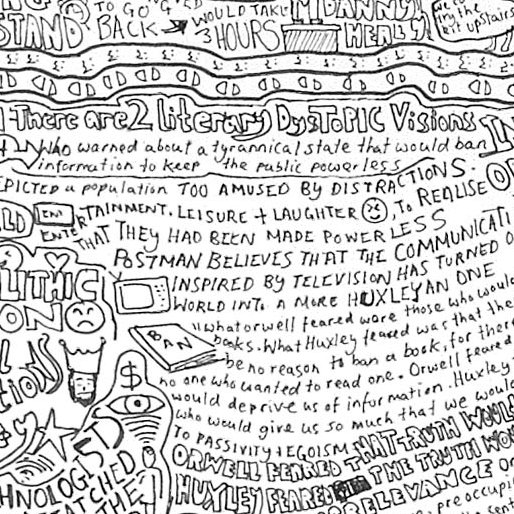 TO GO
STAND
BACK
WOULD TAKE
3 HOURS
DANNY
HEALY
upstairs
There are 2 literary DysTOPIC Visions
who warned about a tyrannical state that would ban
information to keep the public powerless
EPICTED a population TOO AMUSED BY DISTRACTIONS.
ENTERTAINMENT. LEISURE + LAUGHTER, TO REALISE
THAT THEY HAD BEEN MADE POWERLESS
POSTMAN BELIEVES THAT THE COMMUNICATI
INSPIRED BY TELEVISION HAS TURNED O
WORLD INTO A MORE HUXLEYAN ONE
"what orwell feared were those who would
BAN
books. What Huxley feared was that the
be no reason to ban a book, for there
no one who wanted to read one. Orwell feared
would deprive us of information. Huxley
who would give us so much that we would
TO PASSIVITY + EGOISM
ORWELL FEARED THAT TRUTH WOUL
HUXLEY FEARED THE TRUTH WO
RELEVANCE
preoccupi
LITHIC
ON
$
HNOLOG